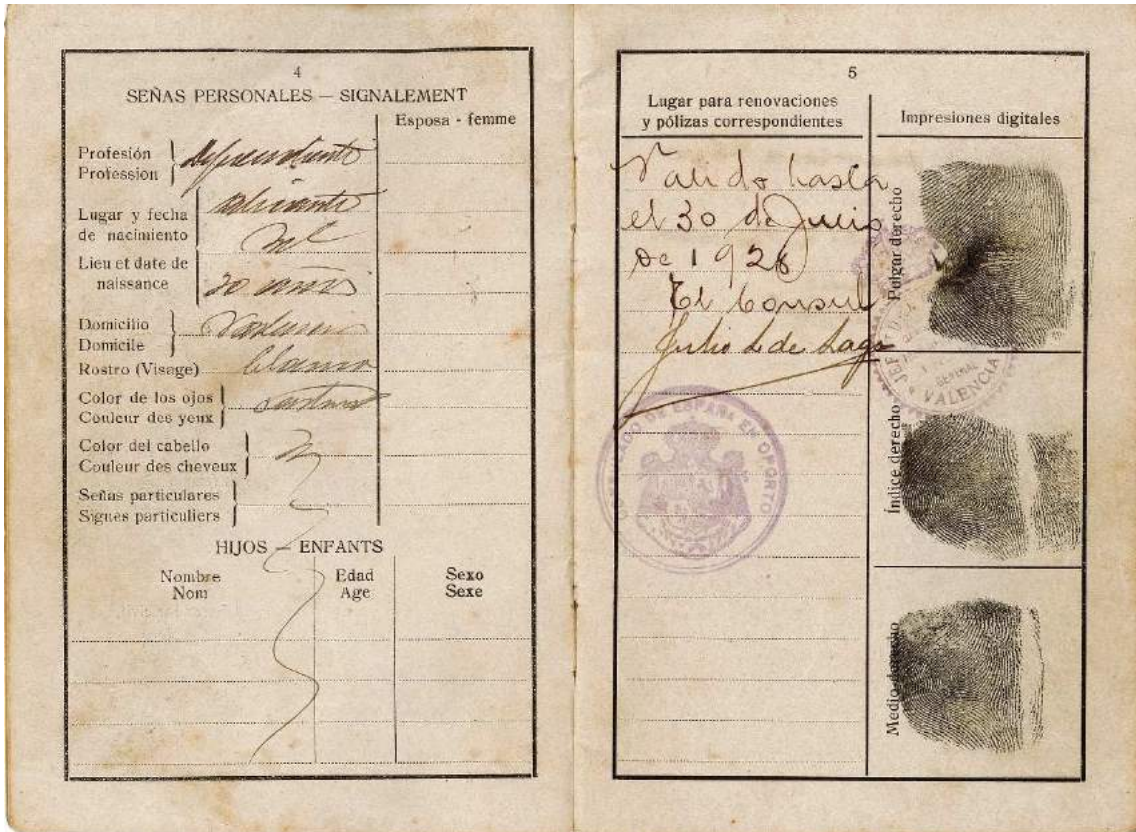 4
SEÑAS PERSONALES — SIGNALEMENT
Esposa - femme
Profesión
Profession
dependiente
Lugar y fecha
de nacimiento
Alicante
Lieu et date de
naissance
30 años
Domicilio
Domicile
Rostro (Visage)
blanco
Color de los ojos
Couleur des yeux
castaños
Color del cabello
Couleur des cheveux
Señas particulares
Signes particuliers
HIJOS — ENFANTS
Nombre
Nom
Edad
Age
Sexo
Sexe
5
Lugar para renovaciones
y pólizas correspondientes
Valido hasta
el 30 de Junio
de 1926
El Consul
Julio L de Lago
DE ESPAÑA EN OPORTO
Impresiones digitales
Pulgar derecho
GENERAL
VALENCIA
Índice derecho
Medio derecho